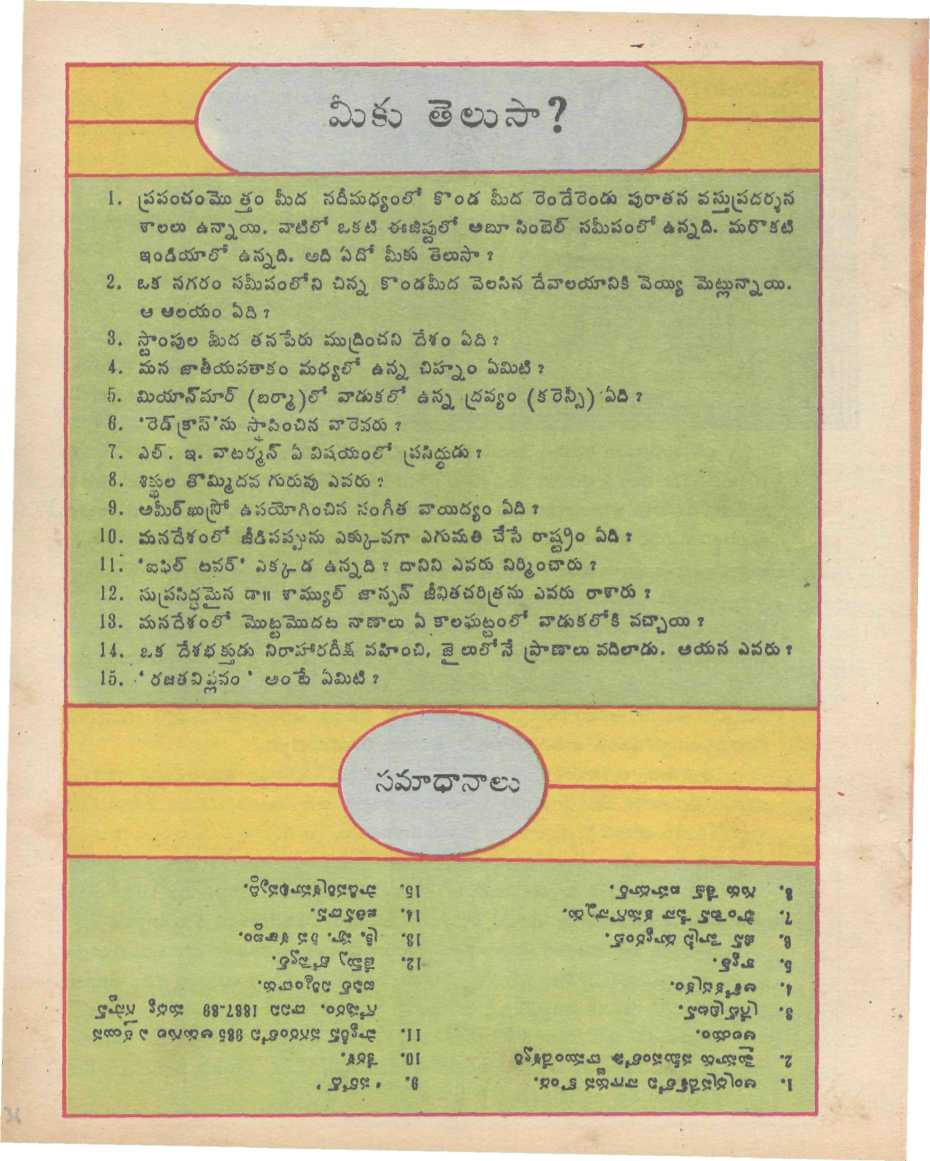 మీకు తెలుసా?
1. ప్రపంచంమొత్తం మీద నదీమధ్యంలో కొండ మీద రెండేరెండు పురాతన వస్తుప్రదర్శన
శాలలు ఉన్నాయి. వాటిలో ఒకటి ఈజిప్టులో ఆబూ సింబెల్ సమీపంలో ఉన్నది. మరొకటి
ఇండియాలో ఉన్నది. అది ఏదో మీకు తెలుసా?
2. ఒక నగరం సమీపంలోని చిన్న కొండమీద వెలసిన దేవాలయానికి వెయ్యి మెట్లున్నాయి.
ఆ ఆలయం ఏది?
3. స్టాంపుల మీద తనపేరు ముద్రించని దేశం ఏది?
4. మన జాతీయపతాకం మధ్యలో ఉన్న చిహ్నం ఏమిటి?
5. మియాన్‌మార్ (బర్మా)లో వాడుకలో ఉన్న ద్రవ్యం (కరెన్సీ) ఏది?
6. 'రెడ్‌క్రాస్'ను స్థాపించిన వారెవరు?
7. ఎల్. ఇ. వాటర్మన్ ఏ విషయంలో ప్రసిద్ధుడు?
8. శిష్ఖుల తొమ్మిదవ గురువు ఎవరు?
9. అమీర్‌ఖుస్రో ఉపయోగించిన సంగీత వాయిద్యం ఏది?
10. మనదేశంలో జీడిపప్పును ఎక్కువగా ఎగుమతి చేసే రాష్ట్రం ఏది?
11. 'ఐఫిల్ టవర్' ఎక్కడ ఉన్నది? దానిని ఎవరు నిర్మించారు?
12. సుప్రసిద్ధమైన డా॥ శామ్యుల్ జాన్సన్ జీవితచరిత్రను ఎవరు రాశారు?
13. మనదేశంలో మొట్టమొదట నాణాలు ఏ కాలఘట్టంలో వాడుకలోకి వచ్చాయి?
14. ఒక దేశభక్తుడు నిరాహారదీక్ష వహించి, జైలులోనే ప్రాణాలు వదిలాడు. ఆయన ఎవరు?
15. 'రజతవిప్లవం' అంటే ఏమిటి?
సమాధానాలు
1. ఆంధ్రప్రదేశ్‌లోని నాగార్జున కొండ.
2. మైసూరు సమీపంలోని చాముండేశ్వరి
ఆలయం.
3. గ్రేట్‌బ్రిటన్.
4. అశోకచక్రం.
5. క్యాత్.
6. జీన్ హెన్రీ డ్యూరంట్.
7. ఫౌంటెన్ పేన్ కనుగొన్నాడు.
8. గురు తేజ్ బహదూర్.
9. 'సితార్'
10. కేరళ.
11. పారిస్ నగరంలోని 985 అడుగుల ఎత్తయిన
గోపురం. దానిని 1887-89 మధ్య గుస్తావ్
ఐఫిల్ నిర్మించాడు.
12. జేమ్స్ బోస్వెల్.
13. క్రీ. పూ. 6వ శతాబ్దం.
14. జతిన్‌దాస్.